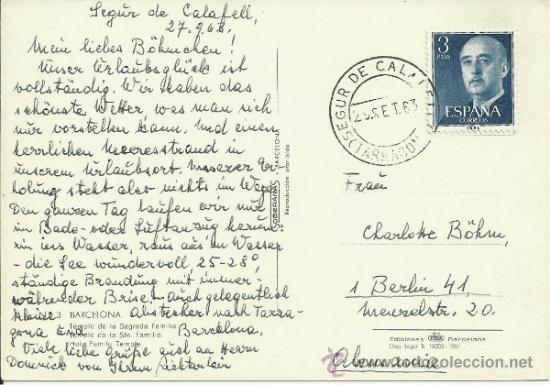 Segur de Calafell,
27.9.63.
Mein liebes Böhmchen!
Unser Urlaubsglück ist
vollständig. Wir haben das
schönste Wetter, was man sich
nur vorstellen kann. Und einen
herrlichen Meeresstrand in
unserem Urlaubsort. Unserer Er-
holung steht also nichts im Wege.
Den ganzen Tag laufen wir nur
in Bade- oder Luftanzug herum,
rin ins Wasser, raus aus'm Wasser
- die See wundervoll, 25-28°,
ständige Brandung mit immer-
währender Brise. Auch gelegentlich
kleine Abstecher nach Tarra-
gona und Barcelona.
Viele liebe Grüße auch an Herrn
von Ihrem
3 BARCELONA
Templo de la Sagrada Familia
Temple de la Ste. Famille
Holy Family Temple
SOBERANAS BARCELONA
Reproducción prohibida
SEGUR DE CALAFELL
25 SET. 63
(TARRAGONA)
3
PTAS
ESPAÑA
CORREOS
Frau
Charlotte Böhm,
1 Berlin 41,
Menzelstr. 20.
Alemania
Ediciones Barcelona
todocoleccion.net